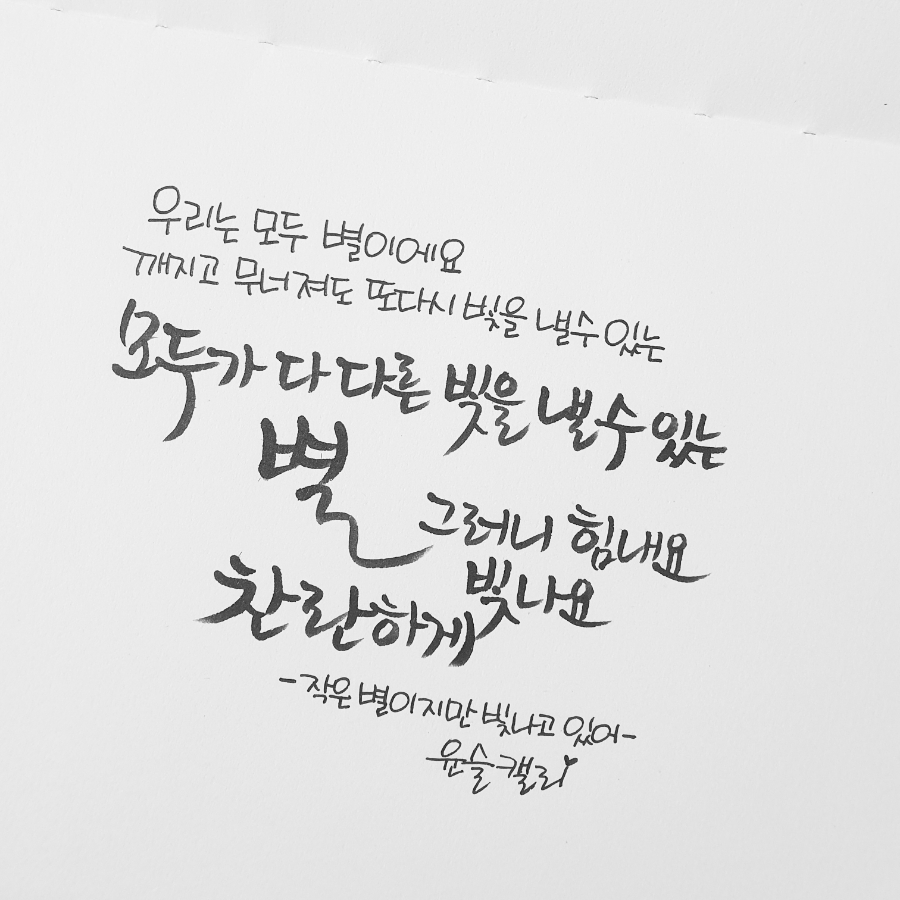 우리는 모두 별이에요
깨지고 무너져도 또다시 빛을 낼수 있는
모두가 다 다른 빛을 낼수 있는
별
그러니 힘내요
빛나요
찬란하게
-작은 별이지만 빛나고 있어-
윤슬캘리